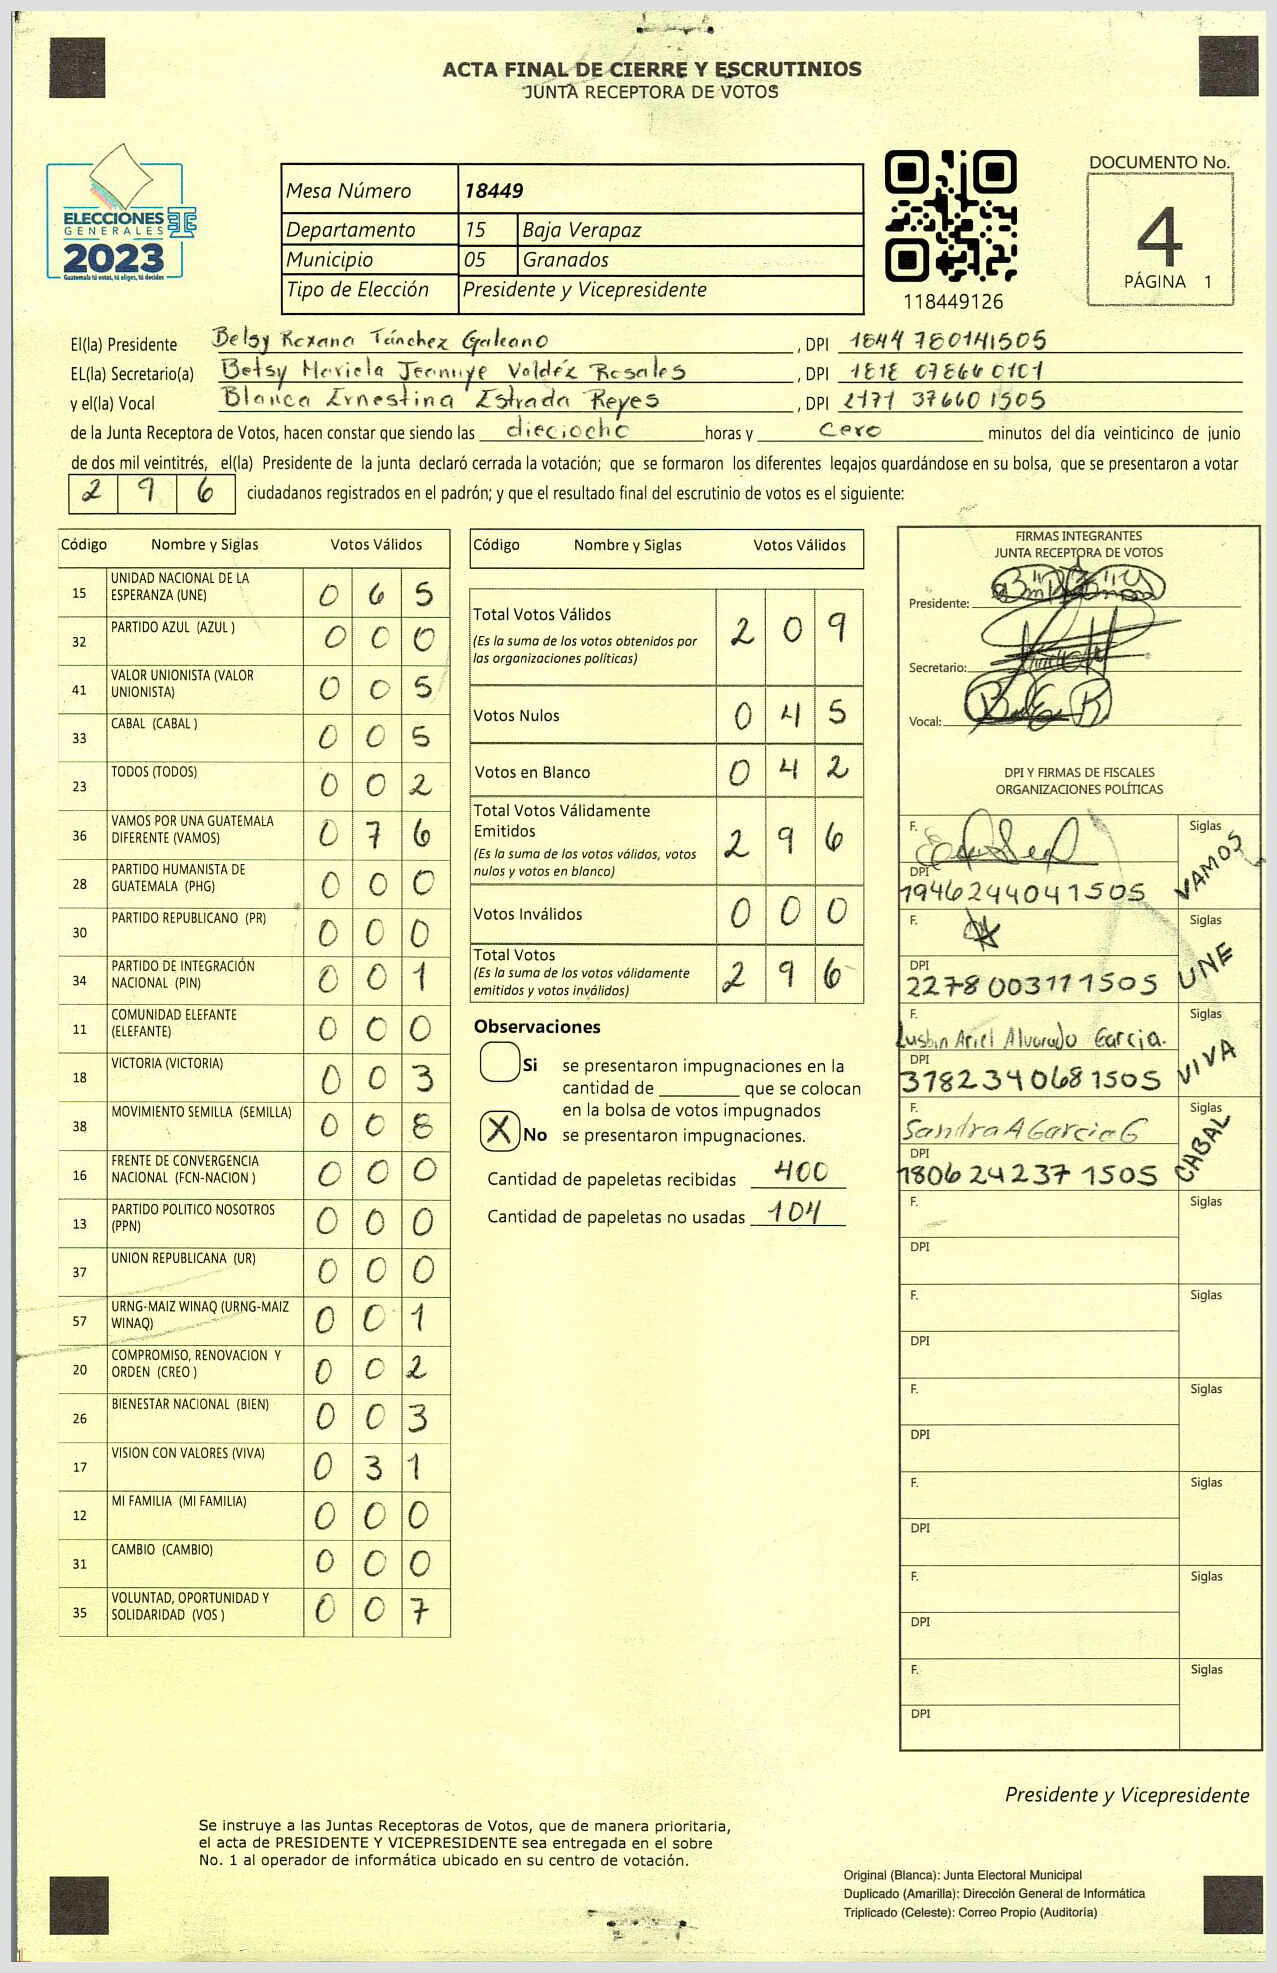 ACTA FINAL DE CIERRE Y ESCRUTINIOS
JUNTA RECEPTORA DE VOTOS
ELECCIONES
GENERALES
2023
Guatemala tú votas, tú eliges, tú decides
Mesa Número 18449
Departamento 15 Baja Verapaz
Municipio 05 Granados
Tipo de Elección Presidente y Vicepresidente
118449126
DOCUMENTO No.
4
PÁGINA 1
El(la) Presidente Belsy Roxana Tánchez Galeano , DPI 1844 780141505
EL(la) Secretario(a) Betsy Mariela Jeannye Valdéz Rosales , DPI 1818 07866 0101
y el(la) Vocal Blanca Ernestina Estrada Reyes , DPI 2171 37660 1505
de la Junta Receptora de Votos, hacen constar que siendo las dieciocho horas y cero minutos del día veinticinco de junio
de dos mil veintitrés, el(la) Presidente de la junta declaró cerrada la votación; que se formaron los diferentes legajos guardándose en su bolsa, que se presentaron a votar
296 ciudadanos registrados en el padrón; y que el resultado final del escrutinio de votos es el siguiente:
Código Nombre y Siglas Votos Válidos
15 UNIDAD NACIONAL DE LA ESPERANZA (UNE) 0 6 5
32 PARTIDO AZUL (AZUL ) 0 0 0
41 VALOR UNIONISTA (VALOR UNIONISTA) 0 0 5
33 CABAL (CABAL ) 0 0 5
23 TODOS (TODOS) 0 0 2
36 VAMOS POR UNA GUATEMALA DIFERENTE (VAMOS) 0 7 6
28 PARTIDO HUMANISTA DE GUATEMALA (PHG) 0 0 0
30 PARTIDO REPUBLICANO (PR) 0 0 0
34 PARTIDO DE INTEGRACIÓN NACIONAL (PIN) 0 0 1
11 COMUNIDAD ELEFANTE (ELEFANTE) 0 0 0
18 VICTORIA (VICTORIA) 0 0 3
38 MOVIMIENTO SEMILLA (SEMILLA) 0 0 8
16 FRENTE DE CONVERGENCIA NACIONAL (FCN-NACION ) 0 0 0
13 PARTIDO POLITICO NOSOTROS (PPN) 0 0 0
37 UNION REPUBLICANA (UR) 0 0 0
57 URNG-MAIZ WINAQ (URNG-MAIZ WINAQ) 0 0 1
20 COMPROMISO, RENOVACION Y ORDEN (CREO ) 0 0 2
26 BIENESTAR NACIONAL (BIEN) 0 0 3
17 VISION CON VALORES (VIVA) 0 3 1
12 MI FAMILIA (MI FAMILIA) 0 0 0
31 CAMBIO (CAMBIO) 0 0 0
35 VOLUNTAD, OPORTUNIDAD Y SOLIDARIDAD (VOS ) 0 0 7
Código Nombre y Siglas Votos Válidos
Total Votos Válidos 2 0 9
(Es la suma de los votos obtenidos por
las organizaciones políticas)
Votos Nulos 0 4 5
Votos en Blanco 0 4 2
Total Votos Válidamente
Emitidos 2 9 6
(Es la suma de los votos válidos, votos
nulos y votos en blanco)
Votos Inválidos 0 0 0
Total Votos 2 9 6
(Es la suma de los votos válidamente
emitidos y votos inválidos)
Observaciones
Si se presentaron impugnaciones en la
cantidad de ________ que se colocan
en la bolsa de votos impugnados
X No se presentaron impugnaciones.
Cantidad de papeletas recibidas 400
Cantidad de papeletas no usadas 104
FIRMAS INTEGRANTES
JUNTA RECEPTORA DE VOTOS
Presidente:
Secretario:
Vocal:
DPI Y FIRMAS DE FISCALES
ORGANIZACIONES POLÍTICAS
F. Siglas VAMOS
DPI
1946244041505
F. Siglas UNE
DPI
2278003111505
F. Lusbin Ariel Alvarado Garcia. Siglas VIVA
DPI
3782340681505
F. Sandra A Garcia G Siglas CABAL
DPI
1806242371505
F. Siglas
DPI
F. Siglas
DPI
F. Siglas
DPI
F. Siglas
DPI
F. Siglas
DPI
F. Siglas
DPI
Presidente y Vicepresidente
Se instruye a las Juntas Receptoras de Votos, que de manera prioritaria,
el acta de PRESIDENTE Y VICEPRESIDENTE sea entregada en el sobre
No. 1 al operador de informática ubicado en su centro de votación.
Original (Blanca): Junta Electoral Municipal
Duplicado (Amarilla): Dirección General de Informática
Triplicado (Celeste): Correo Propio (Auditoría)